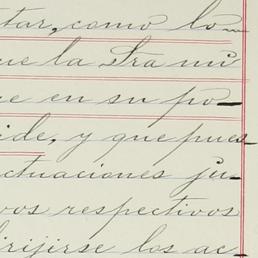 tar, como lo
ue la Sra mi
e en su po-
ide, y que pues-
ctuaciones ju-
vos respectivos
irijirse los ac-